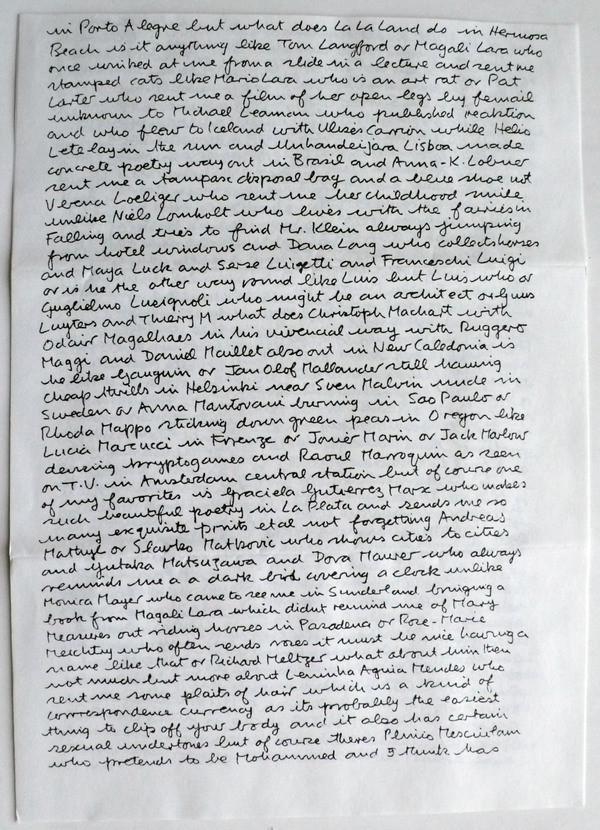 in Porto Alegre but what does La La Land do in Hermosa
Beach is it anything like Tom Langford or Magali Lara who
once winked at me from a slide in a lecture and sent me
stamped cats like Mario Lara who is an art rat or Pat
Larter who sent me a film of her open legs by femail
unknown to Michael Leaman who published reaktion
and who flew to Iceland with Ulises Carrion while Helio
Lete lay in the sun and Unhandeijara Lisboa made
concrete poetry way out in Brasil and Anna-K. Lobner
sent me a tampax disposal bag and a blue shoe not
Verena Loeliger who sent me her childhood smile
unlike Niels Lomholt who lives with the fairies in
Falling and tries to find Mr. Klein always jumping
from hotel windows and Dana Long who collects horses
and Maya Luck and Serse Luigetti and Franceschi Luigi
or is he the other way round like Luis but Luis who or
Guglielmo Lusignoli who might be an architect or Guus
Luyters and Thierry M what does Christoph Machart with
Odair Magalhaes in his vivencial way with Ruggero
Maggi and Daniel Maillet also out in New Caledonia is
he like Gauguin or Jan Olof Mallander still having
cheap thrills in Helsinki near Sven Malvin nude in
Sweden or Anna Mantovani burning in Sao Paulo or
Rhoda Mappo sticking down green peas in Oregon like
Lucia Marcucci in Firenze or Javier Marin or Jack Marlow
devising kryptogames and Raoul Marroquin as seen
on T.V. in Amsterdam central station but of course one
of my favorites is Graciela Gutierrez Marx who makes
such beautiful poetry in La Plata and sends me so
many exquisite prints et al not forgetting Andreas
Mattyl or Slavko Matkovic who shows cities to cities
and Yutaka Matsuzawa and Dora Maurer who always
reminds me a a dark bird covering a clock unlike
Monica Mayer who came to see me in Sunderland bringing a
book from Magali Lara which didnt remind me of Mary
Mearures out riding horses in Pasadena or Rose-Marie
Meichtry who often sends roses it must be nice having a
name like that or Richard Meltzer what about him then
not much but more about Leninha Aguia Mendes who
sent me some plaits of hair which is a kind of
correspondence currency as its probably the easiest
thing to clip off your body and it also has certain
sexual undertones but of course theres Plinio Mesciulam
who pretends to be Mohammed and I think has